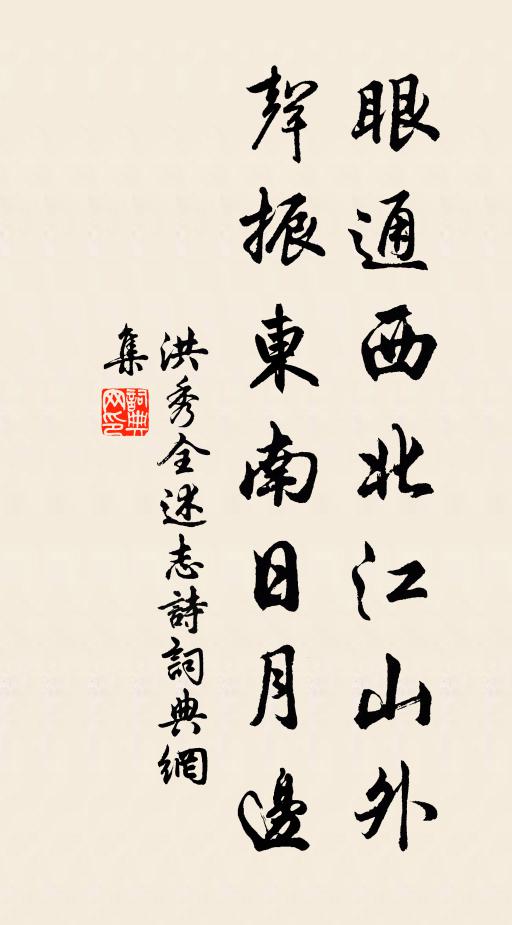 眼通西北江山外
聲振東南日月邊
洪秀全述志詩詞典網
集
詞典
网印